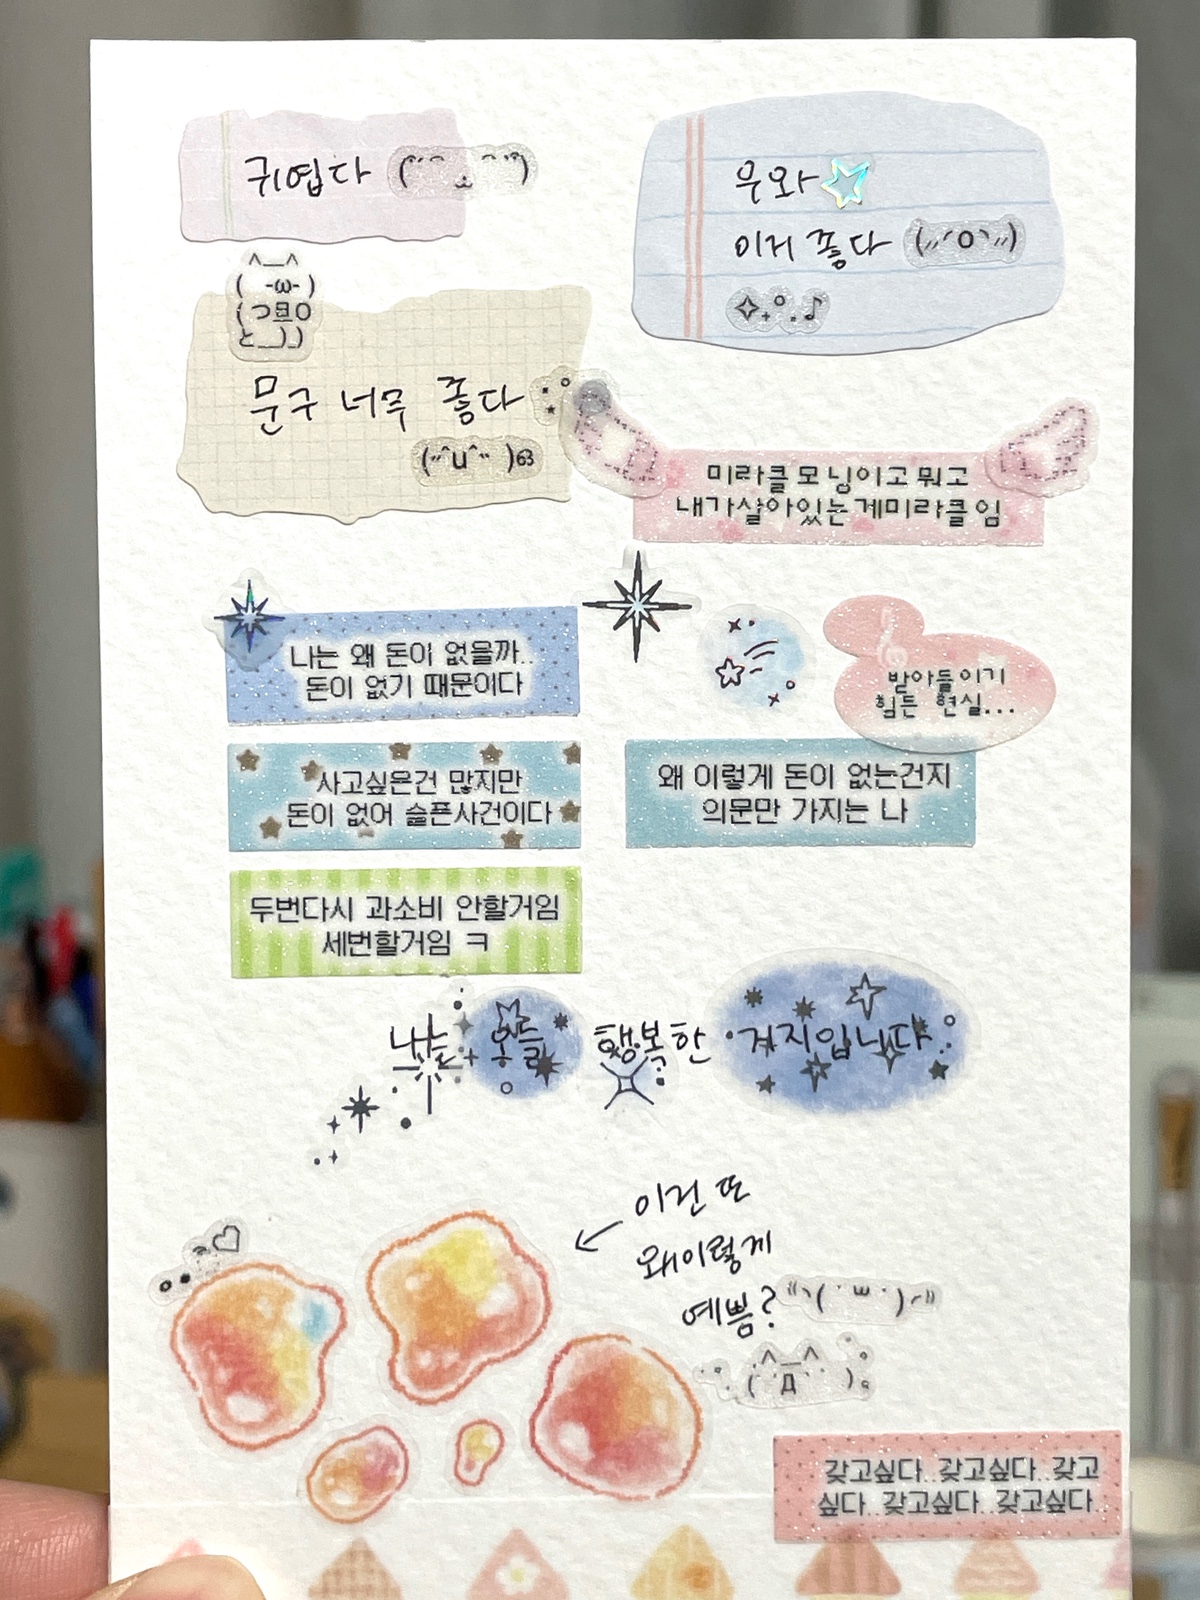 귀엽다
우와
이거 좋다 (⸝⸝ˊOˋ⸝⸝)
문구 너무 좋다
미라클모닝이고 뭐고
내가살아있는게미라클임
나는 왜 돈이 없을까..
돈이 없기 때문이다
받아들이기
힘든 현실...
사고싶은건 많지만
돈이 없어 슬픈사건이다
왜 이렇게 돈이 없는건지
의문만 가지는 나
두번다시 과소비 안할거임
세번할거임 ㅋ
나는 오늘 행복한 거지입니다
이건 또
왜이렇게
예쁨?
갖고싶다..갖고싶다..갖고
싶다..갖고싶다..갖고싶다..